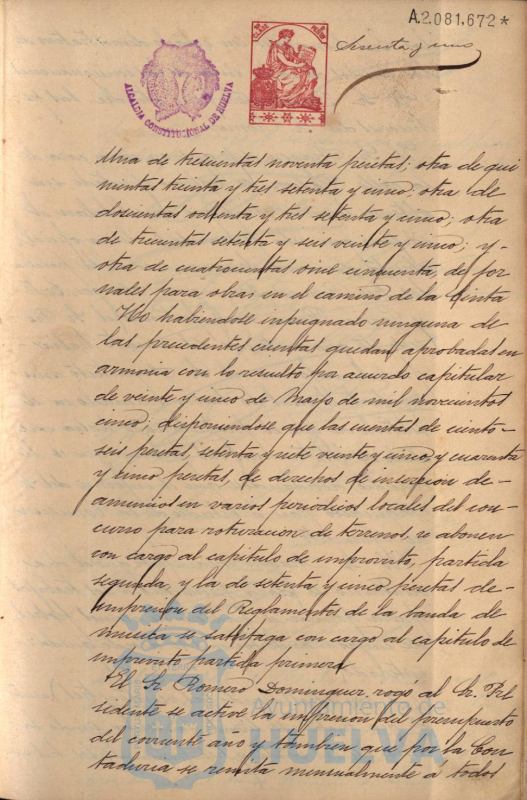 A.2.081.672*
Sesenta y uno
ALCALDIA CONSTITUCIONAL DE HUELVA
Una de trescientas noventa pesetas; otra de qui
nientas treinta y tres setenta y cinco; otra de
doscientas ochenta y tres setenta y cinco; otra
de trescientas setenta y seis veinte y cinco; y
otra de cuatrocientas once cincuenta, de jor
nales para obras en el camino de la Cinta
No habiendose inpugnado ninguna de
las precedentes cuentas quedan aprobadas en
armonia con lo resuelto por acuerdo capitular
de veinte y cinco de Mayo de mil novecientos
cinco; disponiendose que las cuentas de ciento
seis pesetas, setenta y siete veinte y cinco, y cuarenta
y cinco pesetas, de derechos de insercion de
anuncios en varios periodicos locales del con
curso para roturacion de terrenos, se abonen
con cargo al capitulo de imprevisto, partida
segunda, y la de setenta y cinco pesetas de
impresion del Reglamentos de la banda de
musica se satisfaga con cargo al capitulo de
imprevisto partida primera
El Sr. Romero Dominguez, rogó al Sr. Pre
sidente se active la impresion del presupuesto
del corriente año y tambien que por la Con
taduria se remita mensualmente a todos
Ayuntamiento de
HUELVA